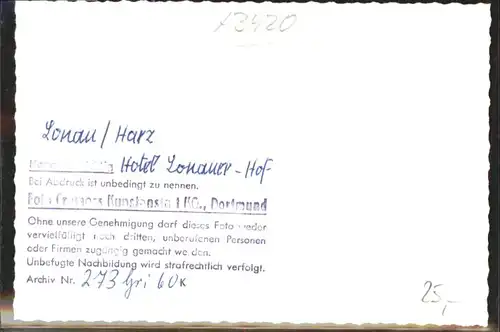 x3420
Lonau / Harz
Hotel Lonauer-Hof
Bei Abdruck ist unbedingt zu nennen.
Foto Cramers Kunstanstalt KG., Dortmund
Ohne unsere Genehmigung darf dieses Foto weder
vervielfältigt noch dritten, unberufenen Personen
oder Firmen zugängig gemacht werden.
Unbefugte Nachbildung wird strafrechtlich verfolgt.
Archiv Nr. 273 Gri 60 K
25,-